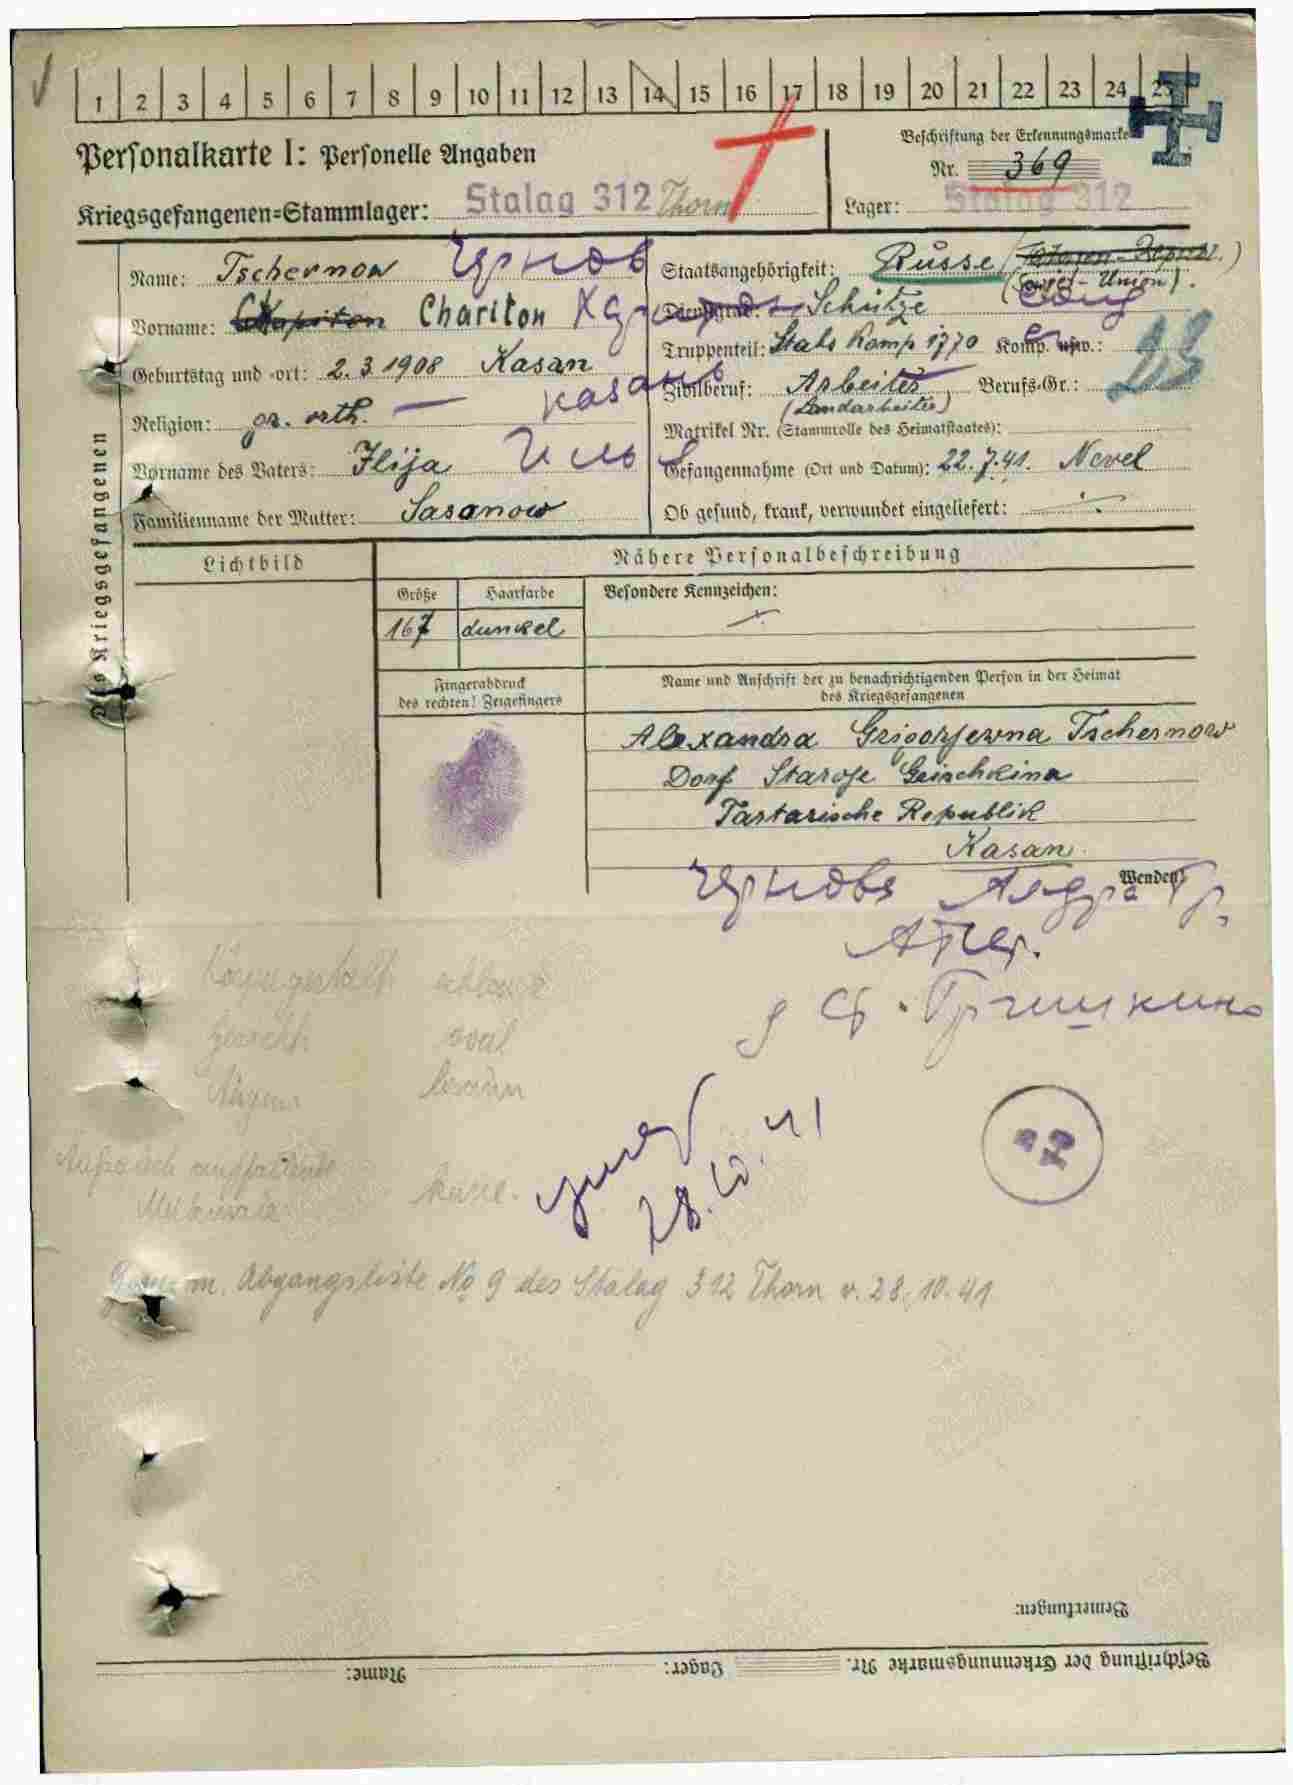 1 2 3 4 5 6 7 8 9 10 11 12 13 14 15 16 17 18 19 20 21 22 23 24 25
Personalkarte I: Personelle Angaben
Beschriftung der Erkennungsmarke
Nr. 369
Kriegsgefangenen=Stammlager: Stalag 312 Thorn
Lager: Stalag 312
Des Kriegsgefangenen
Name: Tschernow Чернов
Vorname: Chariton
Geburtstag und =ort: 2.3.1908 Kasan
казань
Religion: gr. orth.
Vorname des Vaters: Ilija
Familienname der Mutter: Sasanow
Staatsangehörigkeit: Russe
(Sowjet-Union).
Dienstgrad: Schütze
Truppenteil: Stabs Komp 1770 Komp. usw.:
Zivilberuf: Arbeiter Berufs=Gr.: 23
(Landarbeiter)
Matrikel Nr. (Stammrolle des Heimatstaates):
Gefangennahme (Ort und Datum): 22.7.41. Nevel
Ob gesund, krank, verwundet eingeliefert:
Lichtbild
Nähere Personalbeschreibung
Größe Haarfarbe Besondere Kennzeichen:
167 dunkel
Fingerabdruck
des rechten! Zeigefingers
Name und Anschrift der zu benachrichtigenden Person in der Heimat
des Kriegsgefangenen
Alexandra Grigorjewna Tschernow
Dorf Staroje Grischkina
Tartarische Republik
Kasan
Wenden!
Körpergestalt
oval
Augen braun
keine.
28.10.41
m. Abgangsliste No 9 des Stalag 312 Thorn v. 28.10.41
Bemerkungen:
Beschriftung der Erkennungsmarke Nr. Lager: Name: